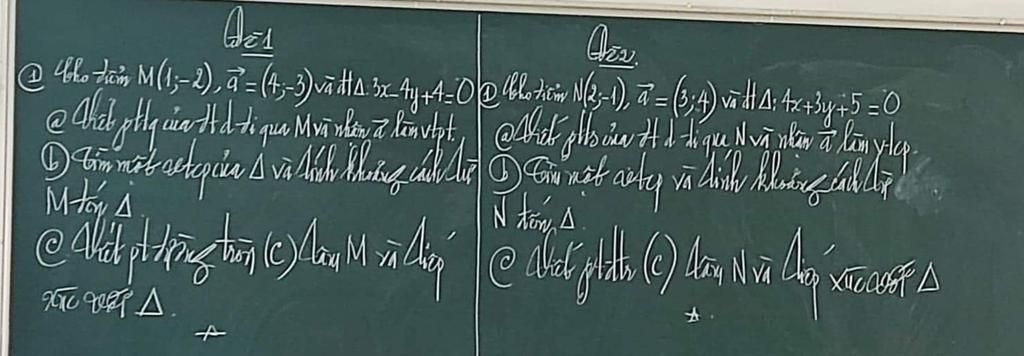 Đề 1
① Cho điểm M(1;-2), a⃗ = (4;-3) và đt Δ: 3x-4y+4=0
ⓐ Viết pttq của đt d đi qua M và nhận a⃗ làm vtpt.
ⓑ Tìm một vectcp của Δ và tính khoảng cách từ
M tới Δ.
ⓒ Viết pt đường tròn (C) tâm M và tiếp
xúc với Δ.
Đề 2
① Cho điểm N(2;-1), a⃗ = (3;4) và đt Δ: 4x+3y+5=0
ⓐ Viết ptts của đt d đi qua N và nhận a⃗ làm vtcp.
ⓑ Tìm một vectcp và tính khoảng cách từ
N tới Δ.
ⓒ Viết ptđtr (C) tâm N và tiếp xúc với Δ